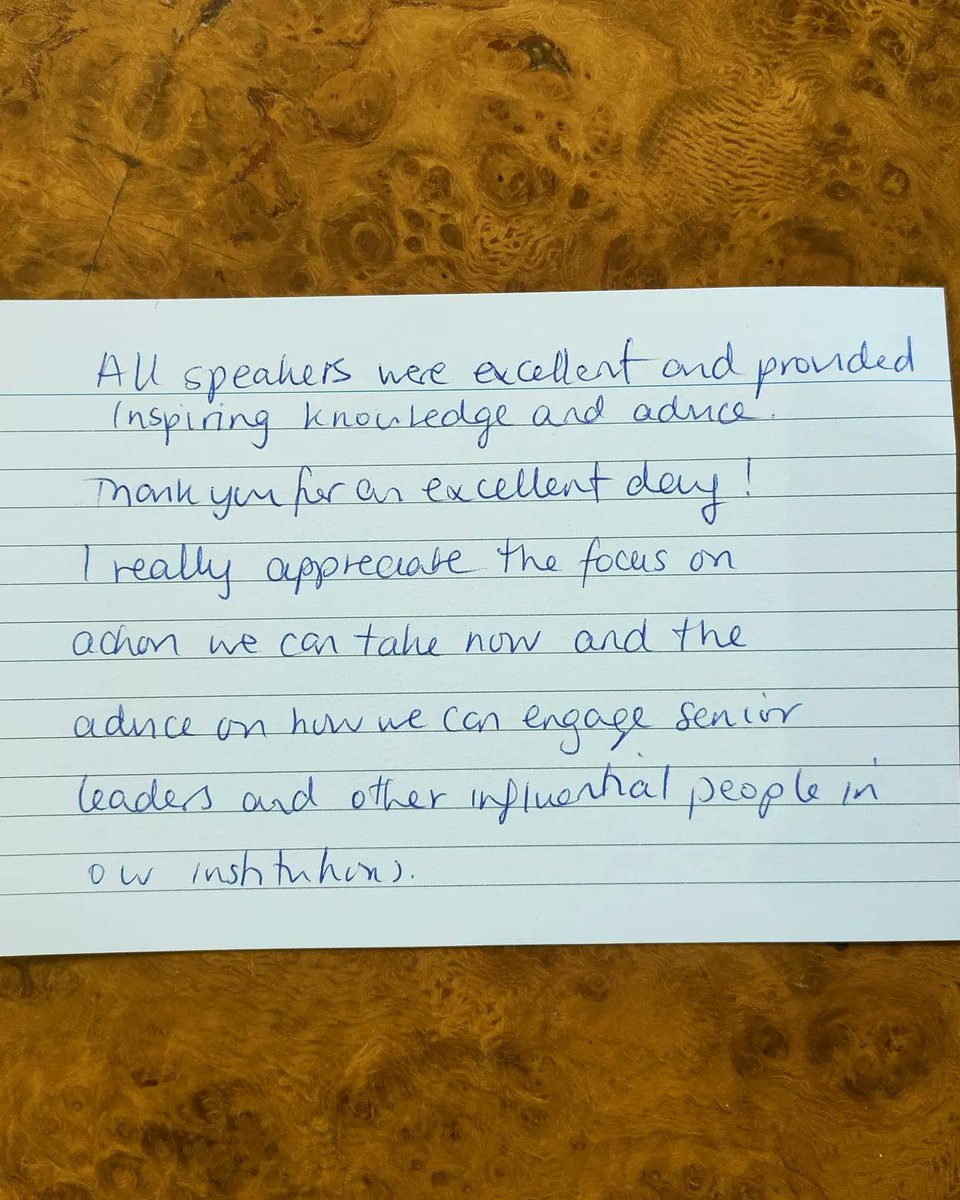 All speakers were excellent and provided
Inspiring knowledge and advice.
Thank you for an excellent day!
I really appreciate the focus on
action we can take now and the
advice on how we can engage senior
leaders and other influential people in
our institutions.